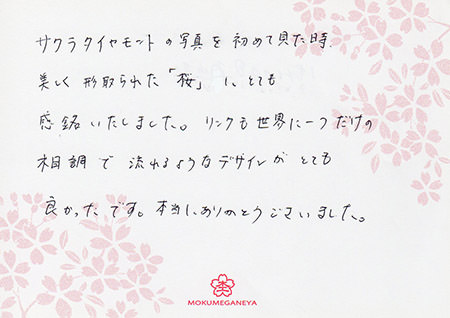 サクラダイヤモンドの写真を初めて見た時、
美しく形取られた「桜」に、とても
感銘いたしました。リングも世界に一つだけの
木目調で流れるようなデザインがとても
良かったです。本当にありがとうございました。
杢
MOKUMEGANEYA